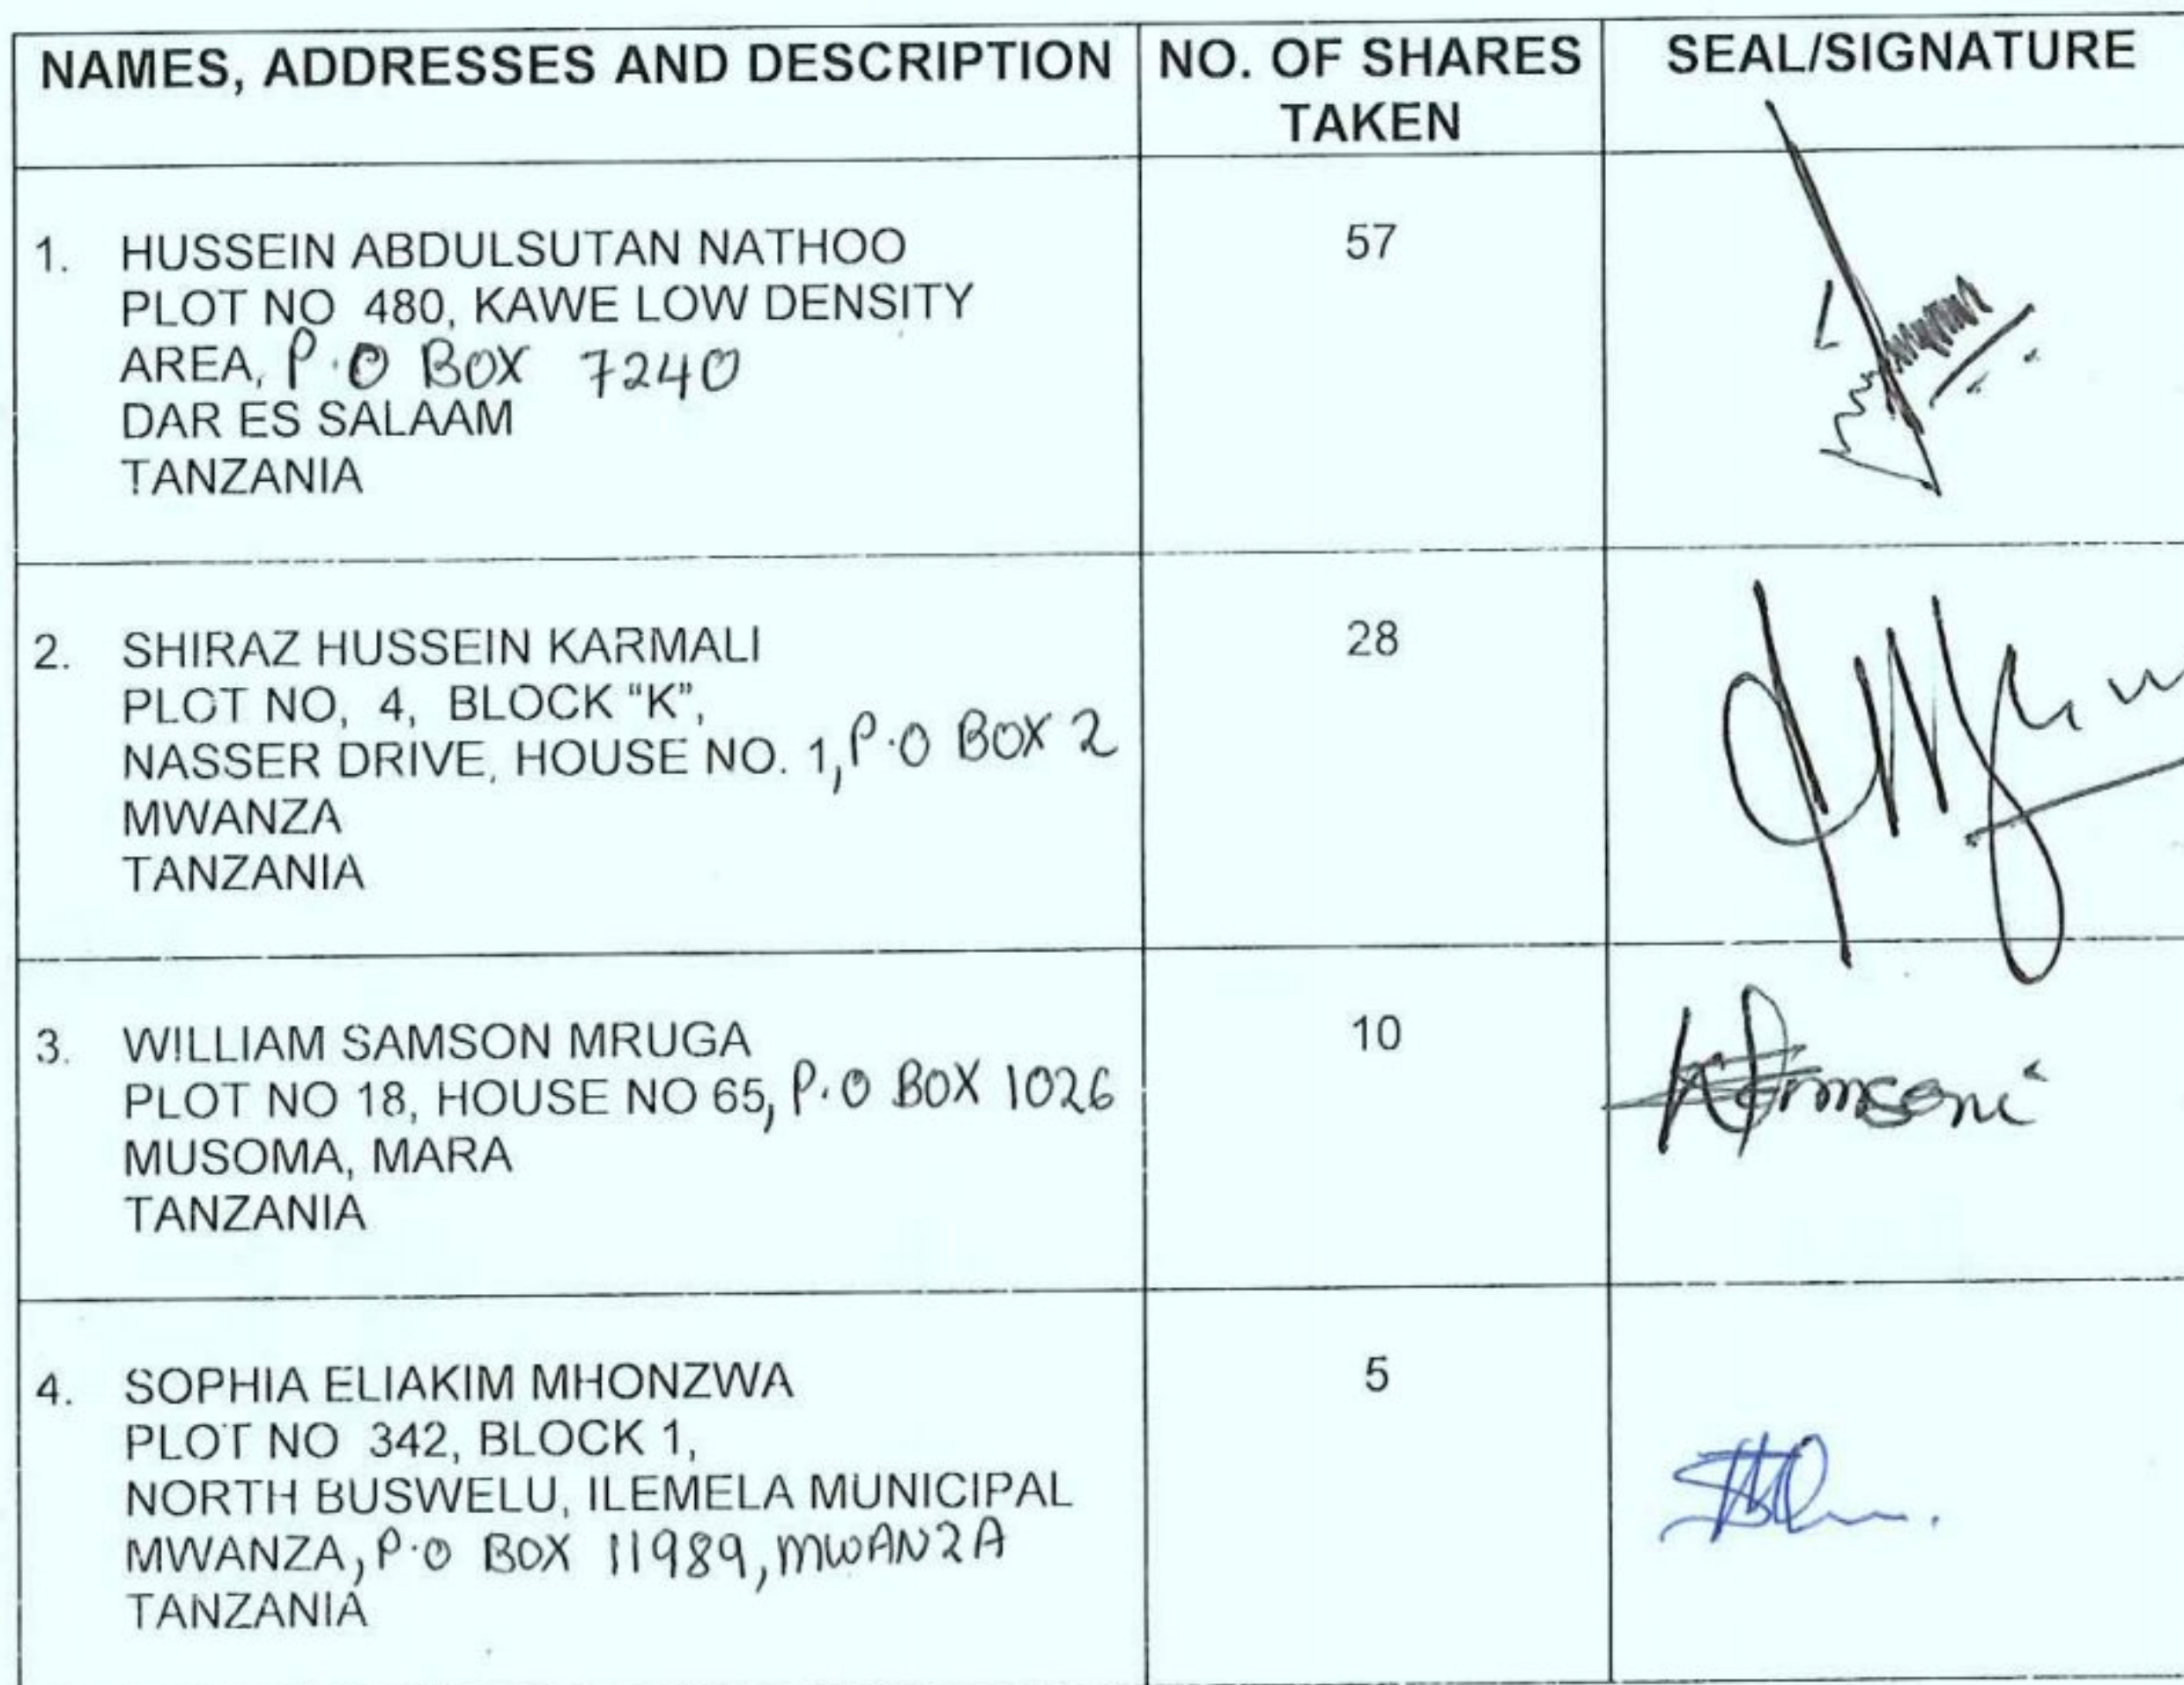 NAMES, ADDRESSES AND DESCRIPTION
NO. OF SHARES
TAKEN
SEAL/SIGNATURE
1. HUSSEIN ABDULSUTAN NATHOO
PLOT NO 480, KAWE LOW DENSITY
AREA, P.O BOX 7240
DAR ES SALAAM
TANZANIA
57
2. SHIRAZ HUSSEIN KARMALI
PLOT NO, 4, BLOCK “K”,
NASSER DRIVE, HOUSE NO. 1, P.O BOX 2
MWANZA
TANZANIA
28
3. WILLIAM SAMSON MRUGA
PLOT NO 18, HOUSE NO 65, P.O BOX 1026
MUSOMA, MARA
TANZANIA
10
4. SOPHIA ELIAKIM MHONZWA
PLOT NO 342, BLOCK 1,
NORTH BUSWELU, ILEMELA MUNICIPAL
MWANZA, P.O BOX 11989, MWANZA
TANZANIA
5